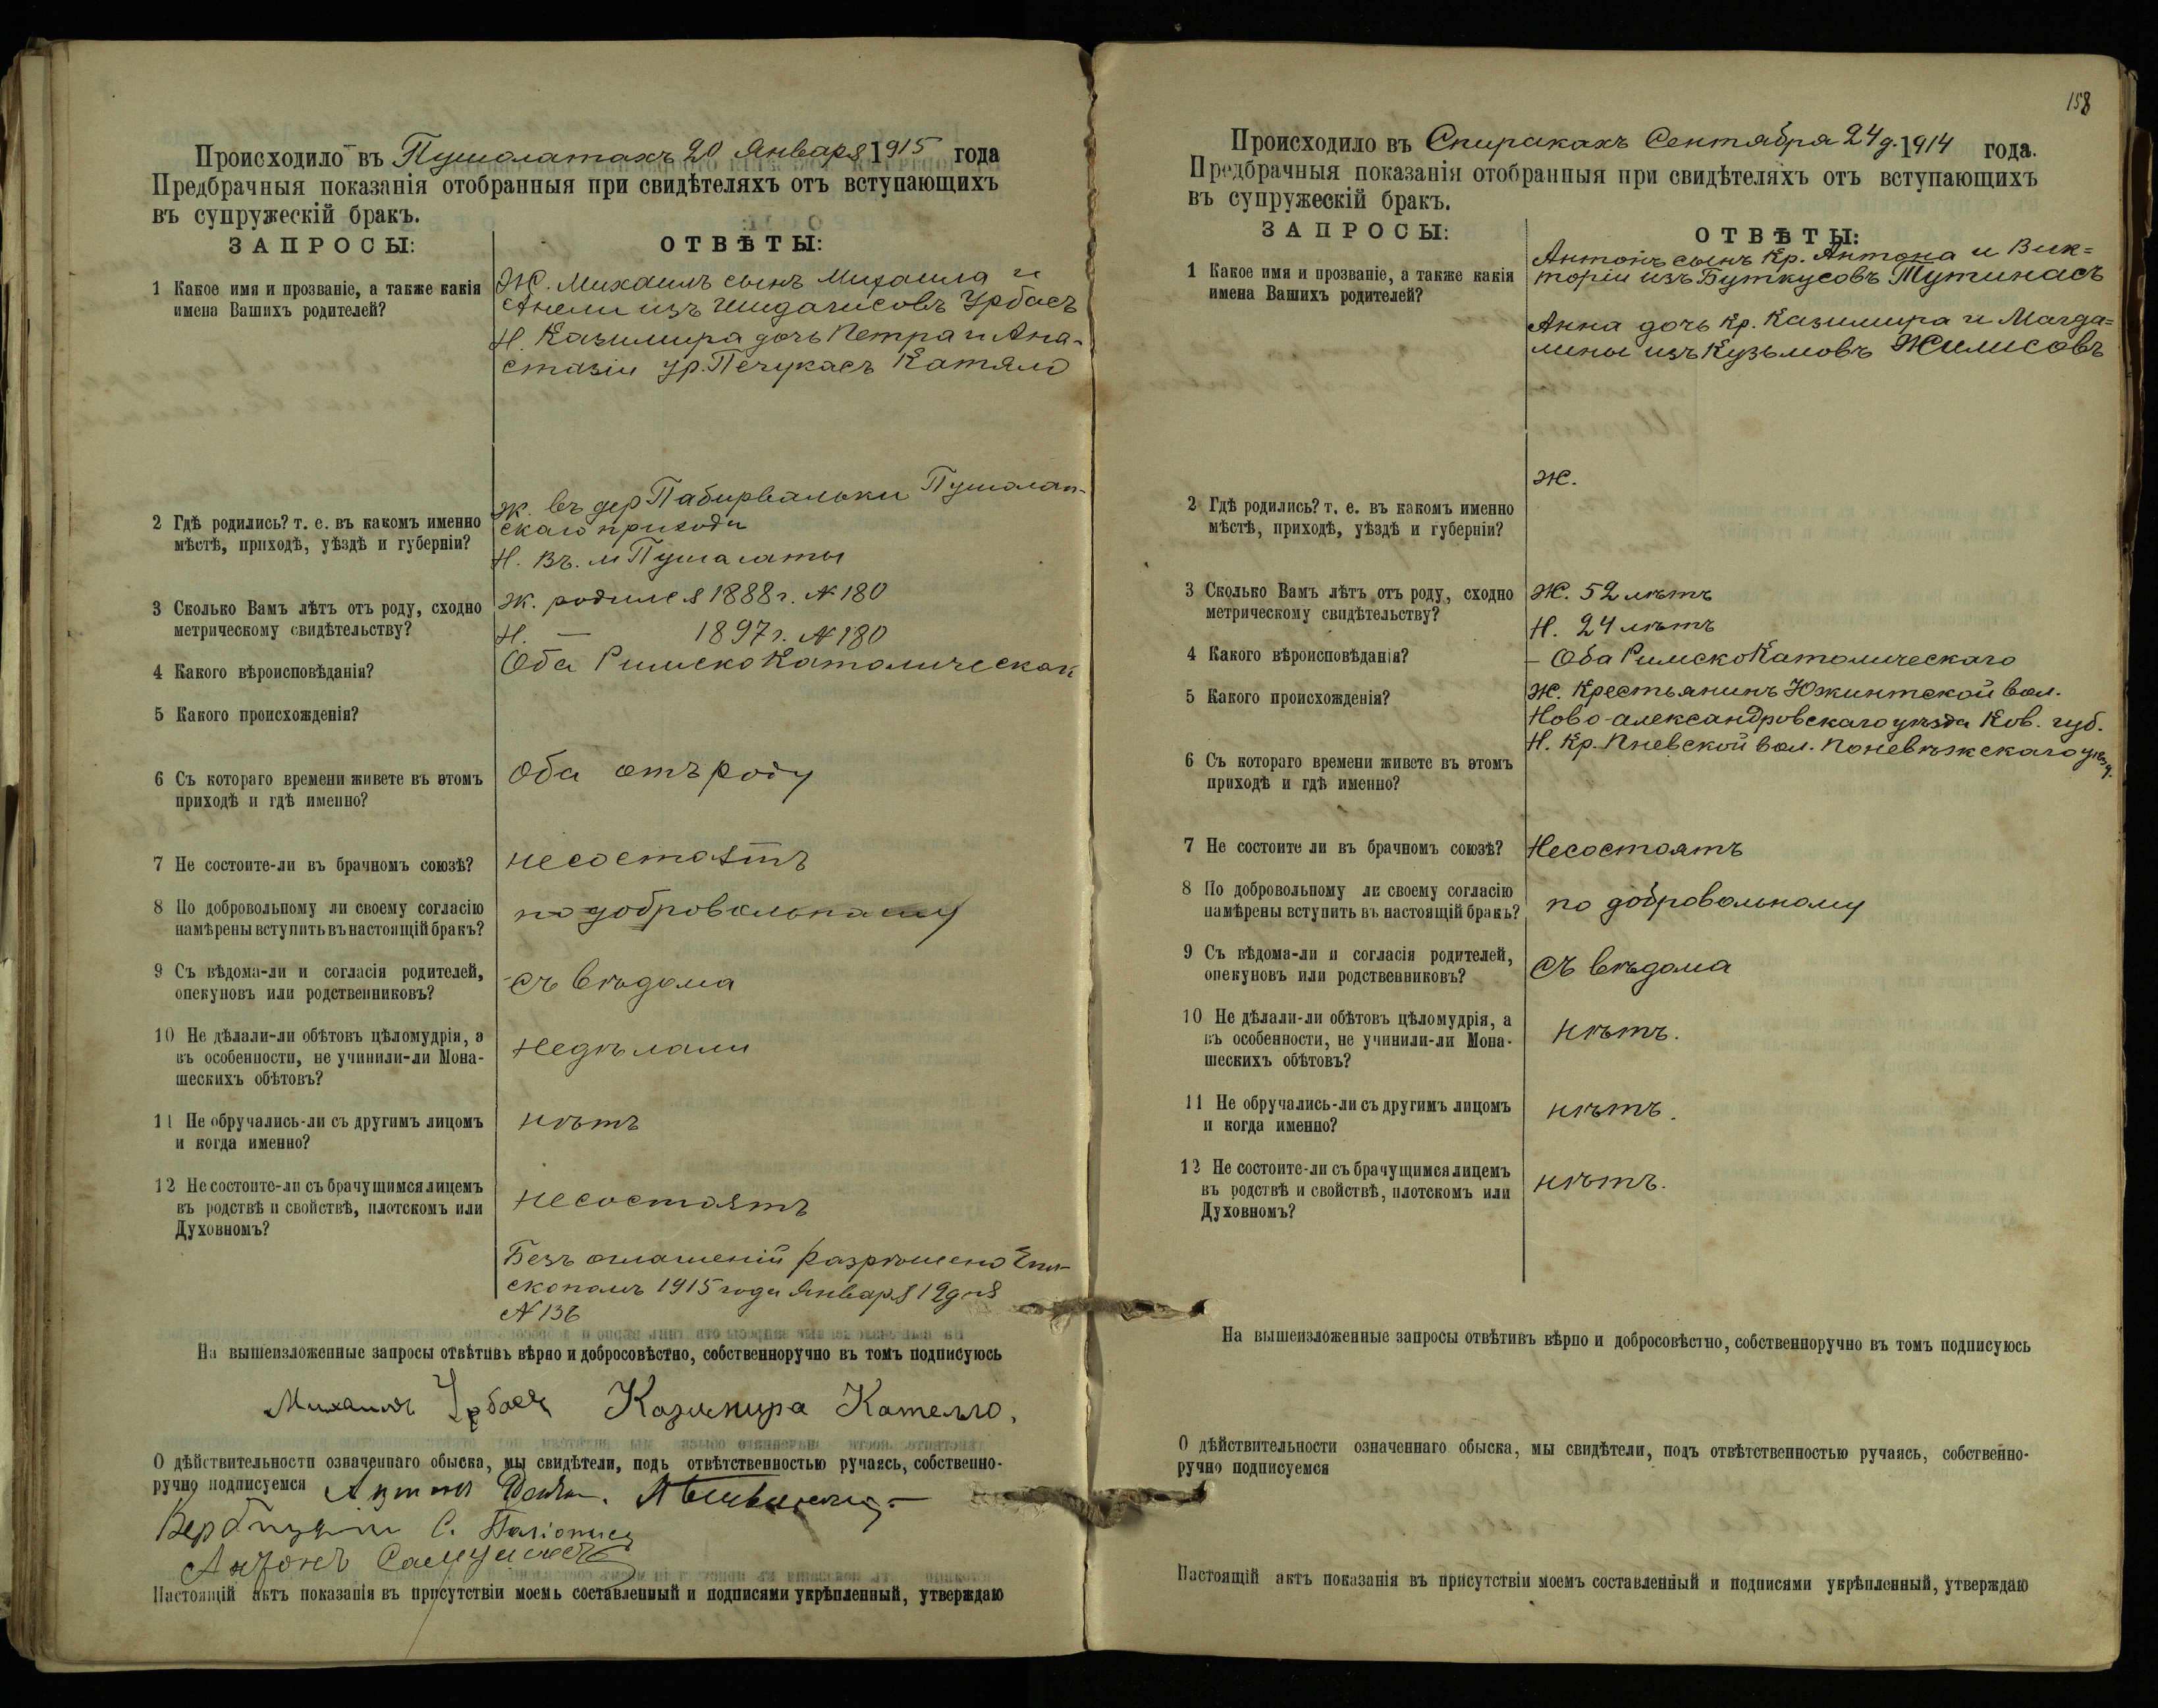 Происходило въ Пушолатахъ 20 Января 1915 года
Предбрачныя показанія отобранныя при свидѣтеляхъ отъ вступающихъ
въ супружескій бракъ.
ЗАПРОСЫ: ОТВѢТЫ:
1 Какое имя и прозваніе, а также какія
имена Вашихъ родителей?
Ж. Михаилъ сынъ Михаила и
Анели изъ Шидагисовъ Урбасъ
Н. Казимира дочь Петра и Ана-
стазіи ур. Печукасъ Катяло
2 Гдѣ родились? т. е. въ какомъ именно
мѣстѣ, приходѣ, уѣздѣ и губерніи?
Ж. въ дер Пабирвальки Пушолат-
скаго прихода
Н. Въ. м Пушалаты
3 Сколько Вамъ лѣтъ отъ роду, сходно
метрическому свидѣтельству?
Ж. родился 1888 г. № 180
Н. — 1897 г. № 180
4 Какого вѣроисповѣданія?
Оба Римско Католической
5 Какого происхожденія?
6 Съ котораго времени живете въ этомъ
приходѣ и гдѣ именно?
Оба отъ роду
7 Не состоите-ли въ брачномъ союзѣ?
несостоятъ
8 По добровольному ли своему согласію
намѣрены вступить въ настоящій бракъ?
по добровольному
9 Съ вѣдома-ли и согласія родителей,
опекуновъ или родственниковъ?
съ вѣдома
10 Не дѣлали-ли обѣтовъ цѣломудрія, а
въ особенности, не учинили-ли Мона-
шескихъ обѣтовъ?
Недѣлали
11 Не обручались-ли съ другимъ лицомъ
и когда именно?
нѣтъ
12 Не состоите-ли съ брачущимся лицемъ
въ родствѣ и свойствѣ, плотскомъ или
Духовномъ?
несостоятъ
Безъ оглашеній разрѣшено Епи-
скопомъ 1915 года Января 12 дня
№ 136
На вышеизложенные запросы отвѣтивъ вѣрно и добросовѣстно, собственноручно въ томъ подписуюсь
Михаилъ Урбасъ Казимира Кателло.
О дѣйствительности означеннаго обыска, мы свидѣтели, подъ отвѣтственностью ручаясь, собственно-
ручно подписуемся Антон
С.
Антонъ
Настоящій актъ показанія въ присутствіи моемъ составленный и подписями укрѣпленный, утверждаю
158
Происходило въ Спиракахъ Сентября 24 д. 1914 года.
Предбрачныя показанія отобранныя при свидѣтеляхъ отъ вступающихъ
въ супружескій бракъ.
ЗАПРОСЫ: ОТВѢТЫ:
1 Какое имя и прозваніе, а также какія
имена Вашихъ родителей?
Антонъ сынъ Кр. Антона и Вик=
торіи изъ Буткусовъ Тутинасъ
Анна дочь Кр. Казимира и Магда=
лины изъ Кузьмовъ Жилисовъ
2 Гдѣ родились? т. е. въ какомъ именно
мѣстѣ, приходѣ, уѣздѣ и губерніи?
Ж.
3 Сколько Вамъ лѣтъ отъ роду, сходно
метрическому свидѣтельству?
Ж. 52 лѣтъ
Н. 24 лѣтъ
4 Какого вѣроисповѣданія?
– Оба Римско Католическаго
5 Какого происхожденія?
Ж. Крестьянинъ Южинтской вол.
Ново-александровскаго уѣзда Ков. губ.
Н. Кр. Пневской вол. Поневѣжскаго уѣзд.
6 Съ котораго времени живете въ этомъ
приходѣ и гдѣ именно?
7 Не состоите ли въ брачномъ союзѣ?
Несостоятъ
8 По добровольному ли своему согласію
намѣрены вступить въ настоящій бракъ?
по добровольному
9 Съ вѣдома-ли и согласія родителей,
опекуновъ или родственниковъ?
Съ вѣдома
10 Не дѣлали-ли обѣтовъ цѣломудрія, а
въ особенности, не учинили-ли Мона-
шескихъ обѣтовъ?
нѣтъ.
11 Не обручались-ли съ другимъ лицомъ
и когда именно?
нѣтъ.
12 Не состоите-ли съ брачущимся лицемъ
въ родствѣ и свойствѣ, плотскомъ или
Духовномъ?
нѣтъ.
На вышеизложенные запросы отвѣтивъ вѣрно и добросовѣстно, собственноручно въ томъ подписуюсь
О дѣйствительности означеннаго обыска, мы свидѣтели, подъ отвѣтственностью ручаясь, собственно-
ручно подписуемся
Настоящій актъ показанія въ присутствіи моемъ составленный и подписями укрѣпленный, утверждаю